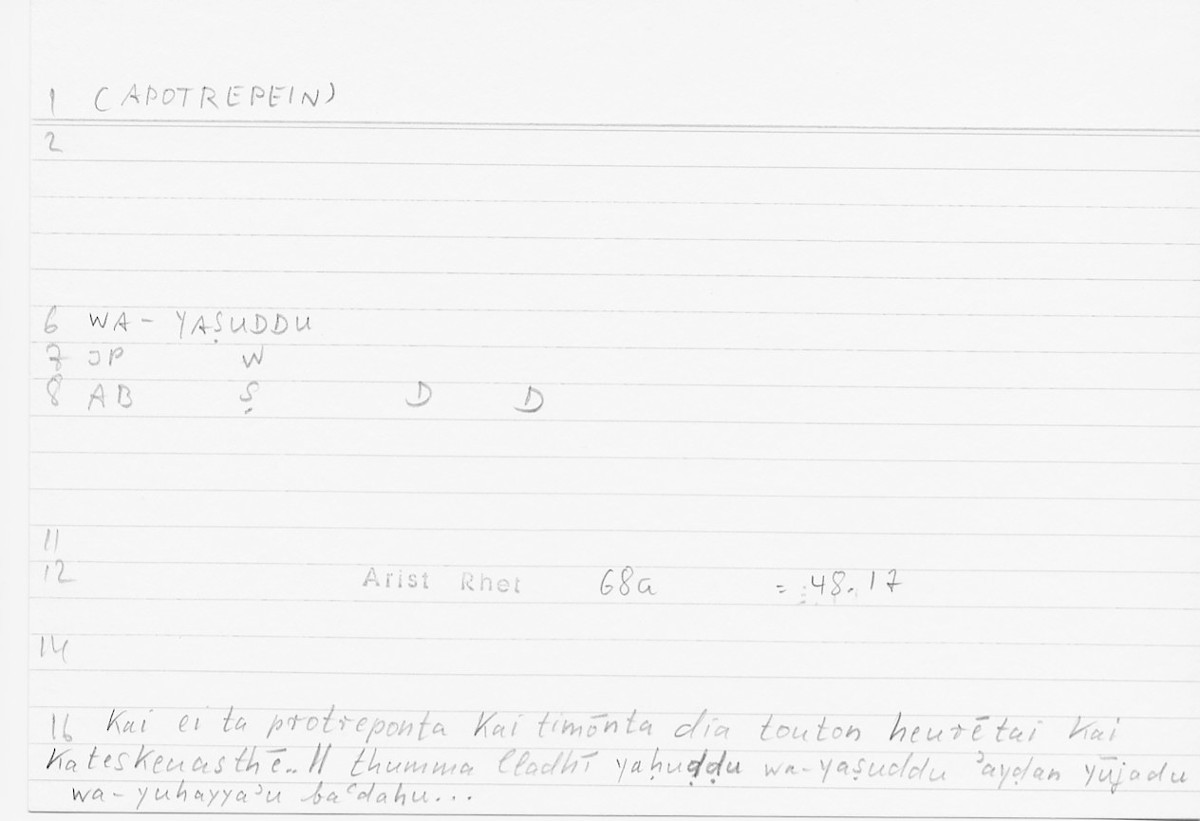 1 (APOTREPEIN)
2
6 WA- YAṢUDDU
7 JP W
8 AB Ṣ D D
11
12 Arist Rhet 68a = 48.17
14
16 Kai ei ta protreponta kai timōnta dia touton heurētai kai
kateskeuasthē.. || thumma lladhī yaḥuḍḍu wa-yaṣuddu ʾayḍan yūjadu
wa-yuhayyaʾu baʿdahu...